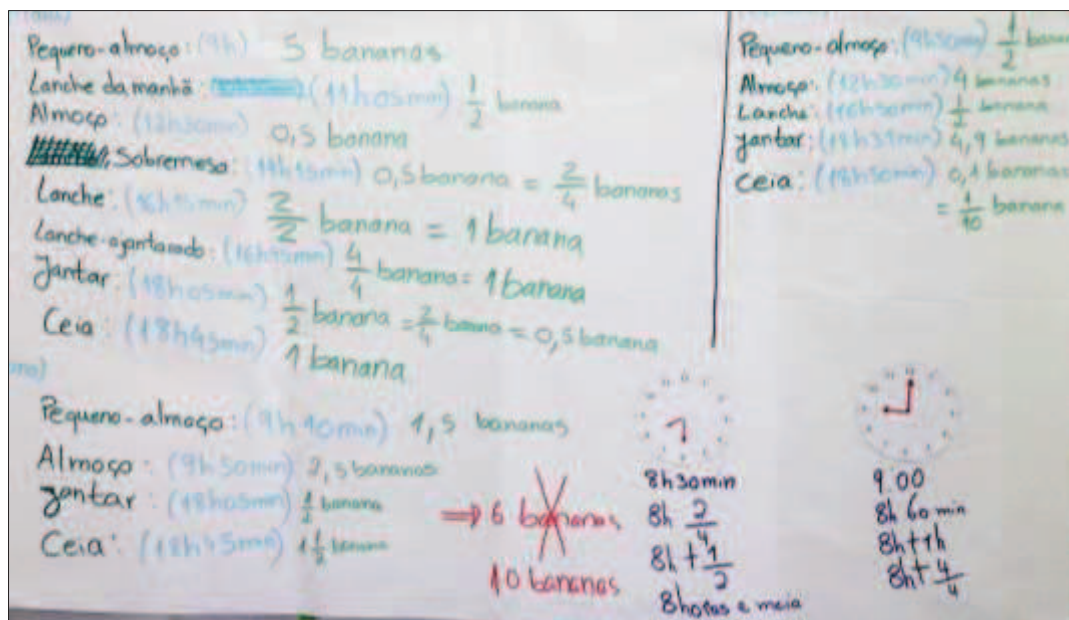 Pequeno-almoço: (9h) 5 bananas
Lanche da manhã (11h05min) 1/2 banana
Almoço: (12h30min) 0,5 banana
Sobremesa: (14h15min) 0,5 banana = 2/4 bananas
Lanche: (16h15min) 2/2 banana = 1 banana
Lanche-ajantarado: 4/4 banana = 1 banana
Jantar: (18h05min) 1/2 banana = 2/4 banana = 0,5 banana
Ceia: (18h45min) 1 banana
Pequeno-almoço: (9h10min) 1,5 bananas
Almoço: (9h50min) 2,5 bananas
Jantar: (18h05min) 1/2 banana
Ceia: (18h45min) 1 1/2 banana
⇒ 6 bananas
10 bananas
Pequeno-almoço: (9h50min) 1/2
Almoço: (12h30min) 4 bananas
Lanche: (16h50min) banana
Jantar: 4,9 bananas
Ceia: (18h50min) 0,1 bananas
= 1/10 banana
8h30min
8h 2/4
8h + 1/2
8horas e meia
9:00
8h 60 min
8h + 1h
8h + 4/4